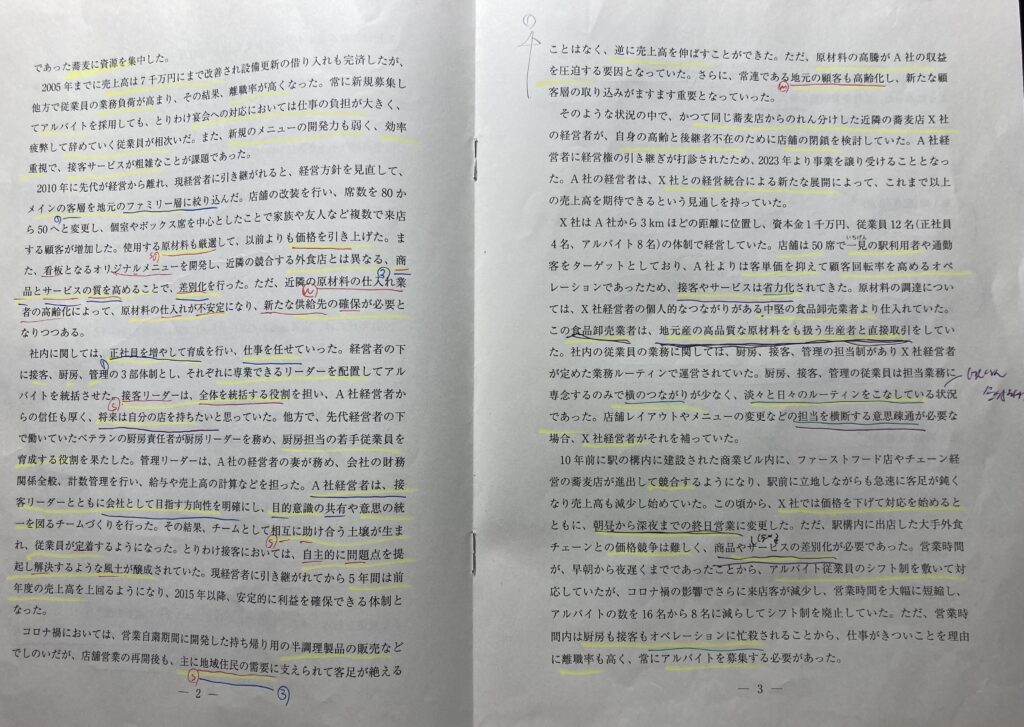 であった蕎麦に資源を集中した。
2005年までに売上高は7千万円にまで改善され設備更新の借り入れも完済したが、
他方で従業員の業務負荷が高まり、その結果、離職率が高くなった。常に新規募集し
てアルバイトを採用しても、とりわけ宴会への対応においては仕事の負担が大きく、
疲弊して辞めていく従業員が相次いだ。また、新規のメニューの開発力も弱く、効率
重視で、接客サービスが粗雑なことが課題であった。
2010年に先代が経営から離れ、現経営者に引き継がれると、経営方針を見直して、
メインの客層を地元のファミリー層に絞り込んだ。店舗の改装を行い、席数を80か
ら50へと変更し、個室やボックス席を中心としたことで家族や友人など複数で来店
する顧客が増加した。使用する原材料も厳選して、以前よりも価格を引き上げた。ま
た、看板となるオリジナルメニューを開発し、近隣の競合する外食店とは異なる、商
品とサービスの質を高めることで、差別化を行った。ただ、近隣の原材料の仕入れ業
者の高齢化によって、原材料の仕入れが不安定になり、新たな供給先の確保が必要と
なりつつある。
社内に関しては、正社員を増やして育成を行い、仕事を任せていった。経営者の下
に接客、厨房、管理の3部体制とし、それぞれに専業できるリーダーを配置してアル
バイトを統括させた。接客リーダーは、全体を統括する役割を担い、A社経営者か
らの信任も厚く、将来は自分の店を持ちたいと思っていた。他方で、先代経営者の下
で働いていたベテランの厨房責任者が厨房リーダーを務め、厨房担当の若手従業員を
育成する役割を果たした。管理リーダーは、A社の経営者の妻が務め、会社の財務
関係全般、計数管理を行い、給与や売上高の計算などを担った。A社経営者は、接
客リーダーとともに会社として目指す方向性を明確にし、目的意識の共有や意思の統
一を図るチームづくりを行った。その結果、チームとして相互に助け合う土壌が生ま
れ、従業員が定着するようになった。とりわけ接客においては、自主的に問題点を提
起し解決するような風土が醸成されていた。現経営者に引き継がれてから5年間は前
年度の売上高を上回るようになり、2015年以降、安定的に利益を確保できる体制と
なった。
コロナ禍においては、営業自粛期間に開発した持ち帰り用の半調理製品の販売など
でしのいだが、店舗営業の再開後も、主に地域住民の需要に支えられて客足が絶える
― 2 ―
ことはなく、逆に売上高を伸ばすことができた。ただ、原材料の高騰がA社の収益
を圧迫する要因となっていた。さらに、常連である地元の顧客も高齢化し、新たな顧
客層の取り込みがますます重要となっていった。
そのような状況の中で、かつて同じ蕎麦店からのれん分けした近隣の蕎麦店X社
の経営者が、自身の高齢と後継者不在のために店舗の閉鎖を検討していた。A社経
営者に経営権の引き継ぎが打診されたため、2023年より事業を譲り受けることとなっ
た。A社の経営者は、X社との経営統合による新たな展開によって、これまで以上
の売上高を期待できるという見通しを持っていた。
X社はA社から3kmほどの距離に位置し、資本金1千万円、従業員12名(正社員
4名、アルバイト8名)の体制で経営していた。店舗は50席で一見の駅利用者や通勤
客をターゲットとしており、A社よりは客単価を抑えて顧客回転率を高めるオペ
レーションであったため、接客やサービスは省力化されてきた。原材料の調達につい
ては、X社経営者の個人的なつながりがある中堅の食品卸売業者より仕入れていた。
この食品卸売業者は、地元産の高品質な原材料をも扱う生産者と直接取引をしてい
た。社内の従業員の業務に関しては、厨房、接客、管理の担当制がありX社経営者
が定めた業務ルーティンで運営されていた。厨房、接客、管理の従業員は担当業務に
専念するのみで横のつながりが少なく、淡々と日々のルーティンをこなしている状況
であった。店舗レイアウトやメニューの変更などの担当を横断する意思疎通が必要な
場合、X社経営者がそれを補っていた。
10年前に駅の構内に建設された商業ビル内に、ファーストフード店やチェーン経
営の蕎麦店が進出して競合するようになり、駅前に立地しながらも急速に客足が鈍く
なり売上高も減少し始めていた。この頃から、X社では価格を下げて対応を始めると
ともに、朝昼から深夜までの終日営業に変更した。ただ、駅構内に出店した大手外食
チェーンとの価格競争は難しく、商品やサービスの差別化が必要であった。営業時間
が、早朝から夜遅くまでであったことから、アルバイト従業員のシフト制を敷いて対
応していたが、コロナ禍の影響でさらに来店客が減少し、営業時間を大幅に短縮し、
アルバイトの数を16名から8名に減らしてシフト制を廃止していた。ただ、営業時
間内は厨房も接客もオペレーションに忙殺されることから、仕事がきついことを理由
に離職率も高く、常にアルバイトを募集する必要があった。
― 3 ―